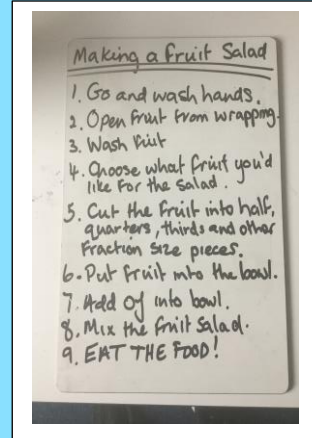 Making a Fruit Salad
1. Go and wash hands.
2. Open fruit from wrapping.
3. Wash fruit
4. Choose what fruit you'd
like for the salad.
5. Cut the fruit into half,
quarters, thirds and other
fraction size pieces.
6. Put fruit into the bowl.
7. Add OJ into bowl.
8. Mix the fruit salad.
9. EAT THE FOOD!